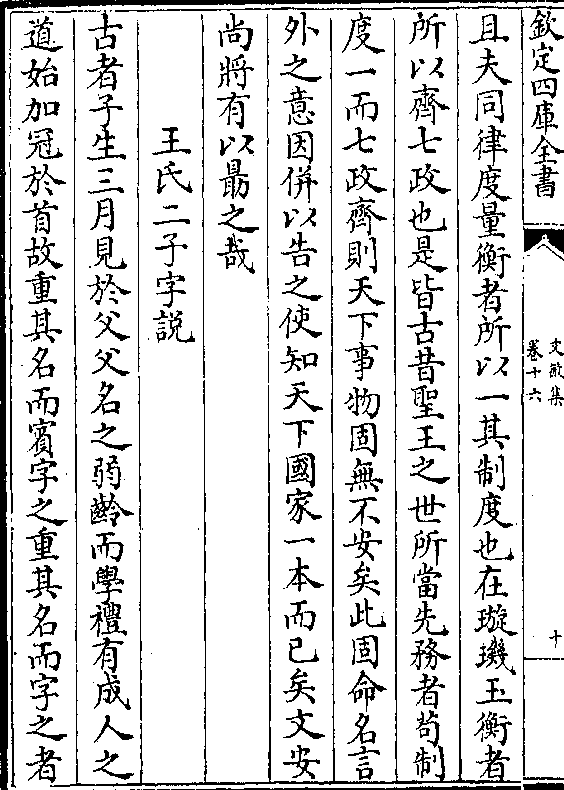 欽定四庫全書
文敏集
卷十六
十
且夫同律度量衡者所以一其制度也在璇璣玉衡者
所以齊七政也是皆古昔聖王之世所當先務者茍制
度一而七政齊則天下事物固無不安矣此固命名言
外之意因併以告之使知天下國家一本而已矣文安
尚將有以勗之哉
王氏二子字説
古者子生三月見於父父名之弱齡而學禮有成人之
道始加冠於首故重其名而賓字之重其名而字之者